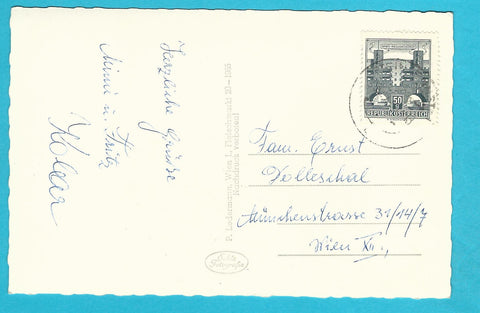 Herzliche Grüsse
Mimi u. Fritz
P. Ledermann, Wien I., Fleischmarkt 20 - 1955
Nachdruck verboten!
50 g
REPUBLIK ÖSTERREICH
Fam. Ernst
Dolleschal
Münchenstrasse 31/14/7
Wien XII.,
Echte
Fotografie